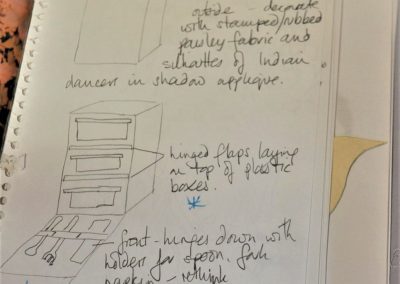 outside - decorate
with stamped/rubbed
paisley fabric and
silhattes of Indian
dancers in shadow applique.
hinged flaps laying
on top of plastic
boxes.
front - hinges down with
holders for spoon. fork
napkin - rethink